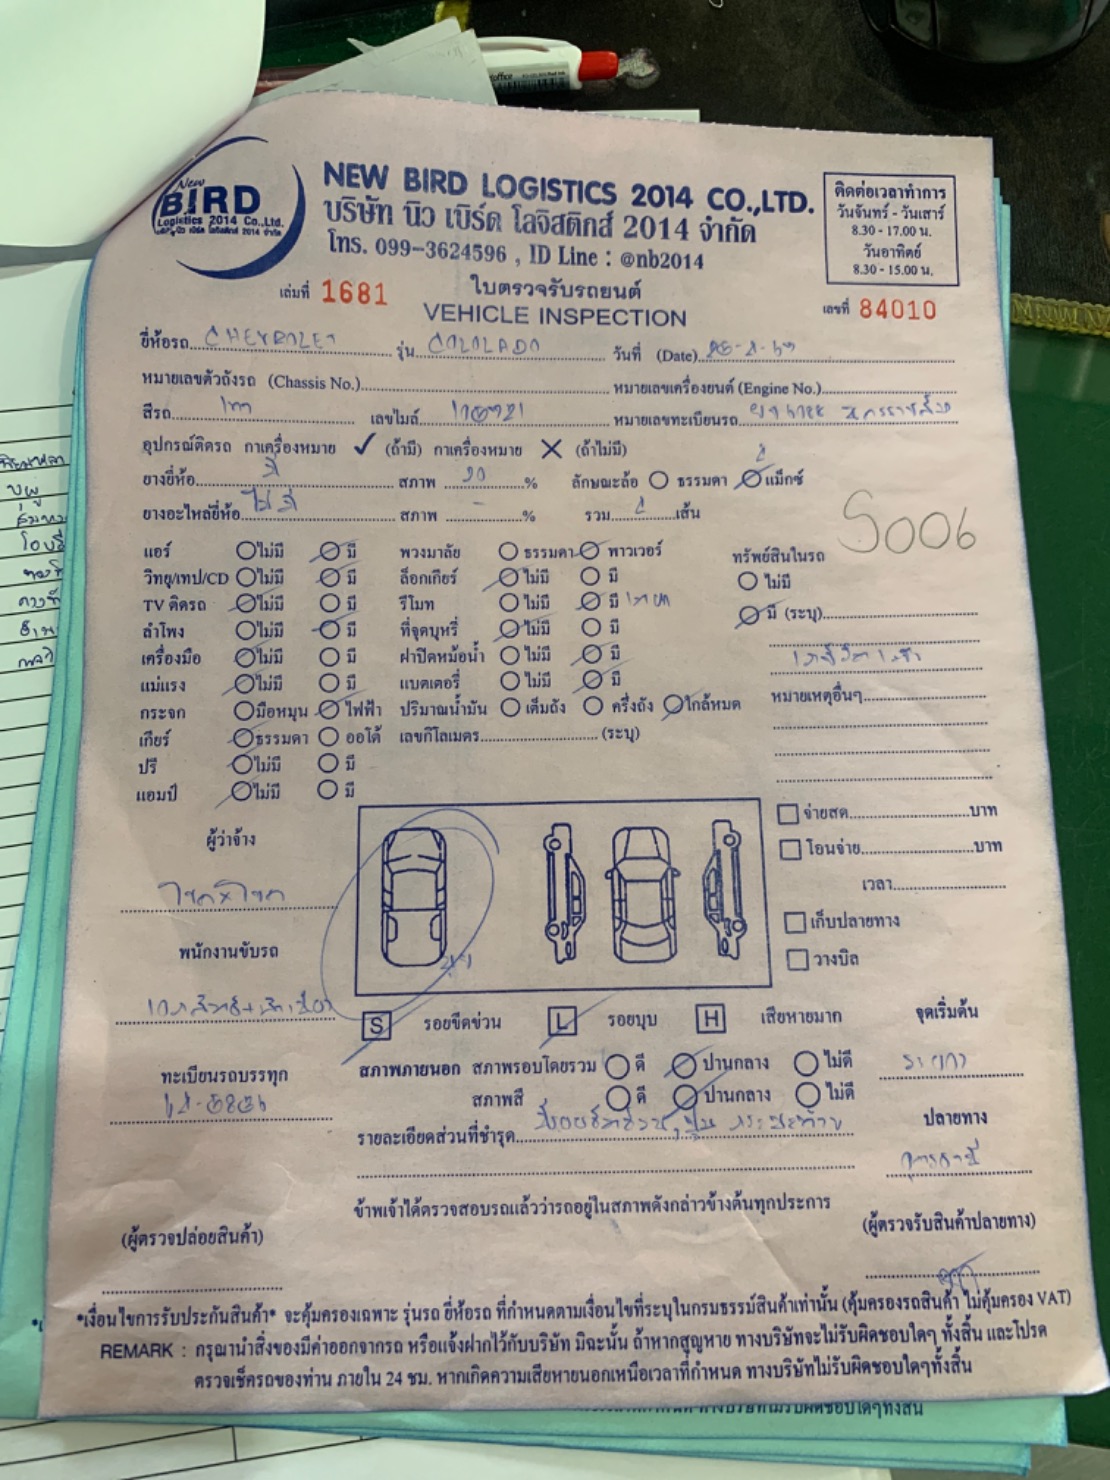 New
BIRD
Logistics 2014 Co.,Ltd.
บริษัท นิว เบิร์ด โลจิสติกส์ 2014 จำกัด
NEW BIRD LOGISTICS 2014 CO.,LTD.
บริษัท นิว เบิร์ด โลจิสติกส์ 2014 จำกัด
โทร. 099-3624596 , ID Line : @nb2014
ติดต่อเวลาทำการ
วันจันทร์ - วันเสาร์
8.30 - 17.00 น.
วันอาทิตย์
8.30 - 15.00 น.
เล่มที่ 1681
ใบตรวจรับรถยนต์
VEHICLE INSPECTION
เลขที่ 84010
ยี่ห้อรถ CHEVROLET รุ่น COLOLADO วันที่ (Date)
หมายเลขตัวถังรถ (Chassis No.) หมายเลขเครื่องยนต์ (Engine No.)
สีรถ เทา เลขไมล์ หมายเลขทะเบียนรถ
อุปกรณ์ติดรถ กาเครื่องหมาย ✓ (ถ้ามี) กาเครื่องหมาย ✕ (ถ้าไม่มี)
ยางยี่ห้อ มี สภาพ % ลักษณะล้อ ธรรมดา แม็กซ์
ยางอะไหล่ยี่ห้อ ไม่มี สภาพ - % รวม เส้น
S006
แอร์ ไม่มี มี พวงมาลัย ธรรมดา พาวเวอร์ ทรัพย์สินในรถ
วิทยุ/เทป/CD ไม่มี มี ล็อกเกียร์ ไม่มี มี ไม่มี
TV ติดรถ ไม่มี มี รีโมท ไม่มี มี มี (ระบุ)
ลำโพง ไม่มี มี ที่จุดบุหรี่ ไม่มี มี
เครื่องมือ ไม่มี มี ฝาปิดหม้อน้ำ ไม่มี มี
แม่แรง ไม่มี มี แบตเตอรี่ ไม่มี มี หมายเหตุอื่นๆ
กระจก มือหมุน ไฟฟ้า ปริมาณน้ำมัน เต็มถัง ครึ่งถัง ใกล้หมด
เกียร์ ธรรมดา ออโต้ เลขกิโลเมตร (ระบุ)
ปรี ไม่มี มี
แอมป์ ไม่มี มี
จ่ายสด บาท
โอนจ่าย บาท
เวลา
เก็บปลายทาง
วางบิล
ผู้ว่าจ้าง
พนักงานขับรถ
S รอยขีดข่วน L รอยบุบ H เสียหายมาก
จุดเริ่มต้น
ทะเบียนรถบรรทุก
สภาพภายนอก สภาพรอบโดยรวม ดี ปานกลาง ไม่ดี
สภาพสี ดี ปานกลาง ไม่ดี
รายละเอียดส่วนที่ชำรุด
ปลายทาง
ข้าพเจ้าได้ตรวจสอบรถแล้วว่ารถอยู่ในสภาพดังกล่าวข้างต้นทุกประการ
(ผู้ตรวจปล่อยสินค้า)
(ผู้ตรวจรับสินค้าปลายทาง)
*เงื่อนไขการรับประกันสินค้า* จะคุ้มครองเฉพาะ รุ่นรถ ยี่ห้อรถ ที่กำหนดตามเงื่อนไขที่ระบุในกรมธรรม์สินค้าเท่านั้น (คุ้มครองรถสินค้า ไม่คุ้มครอง VAT)
REMARK : กรุณานำสิ่งของมีค่าออกจากรถ หรือแจ้งฝากไว้กับบริษัท มิฉะนั้น ถ้าหากสูญหาย ทางบริษัทจะไม่รับผิดชอบใดๆ ทั้งสิ้น และโปรด
ตรวจเช็ครถของท่าน ภายใน 24 ชม. หากเกิดความเสียหายนอกเหนือเวลาที่กำหนด ทางบริษัทไม่รับผิดชอบใดๆทั้งสิ้น